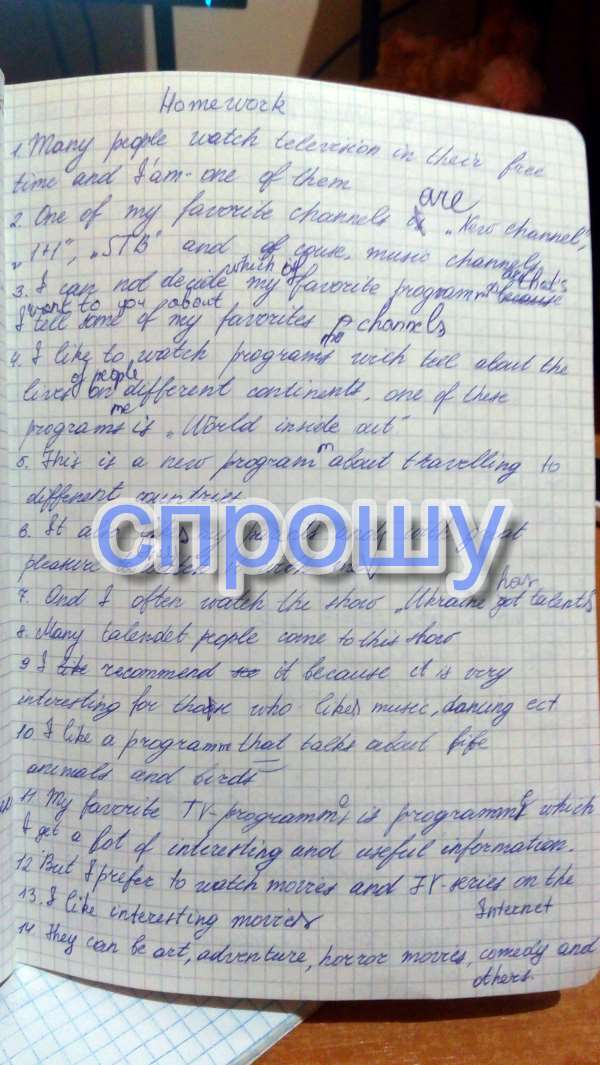 Homework
1. Many people watch television in their free
time and I am - one of them
are
2. One of my favorite channels is „New channel",
„1+1", „STB" and of couse, music channels
which of that's
3. I can not decide my favorite programm because
want to you about
I tell some of my favorites channels
4. I like to watch programs me wich tell about the
of people
lives on different continents, one of these
me
programs is „World inside out"
5. This is a new program m about travelling to
different countries
спрошу
6. It
pleasure
has
7. And I often watch the show „Ukraine got talents
8. Many talendet people come to this show
9 I like recommend it because it is very
interesting for those who likes music, dancing ect
10 I like a programm that talks about
animals and birds
11. My favorite TV-programms is programm which
I get a lot of interesting and useful information.
12 But I prefer to watch movies and TV-series on the
Internet
13. I like interesting movies
14 They can be art, adventure, horror movies, comedy and
others.